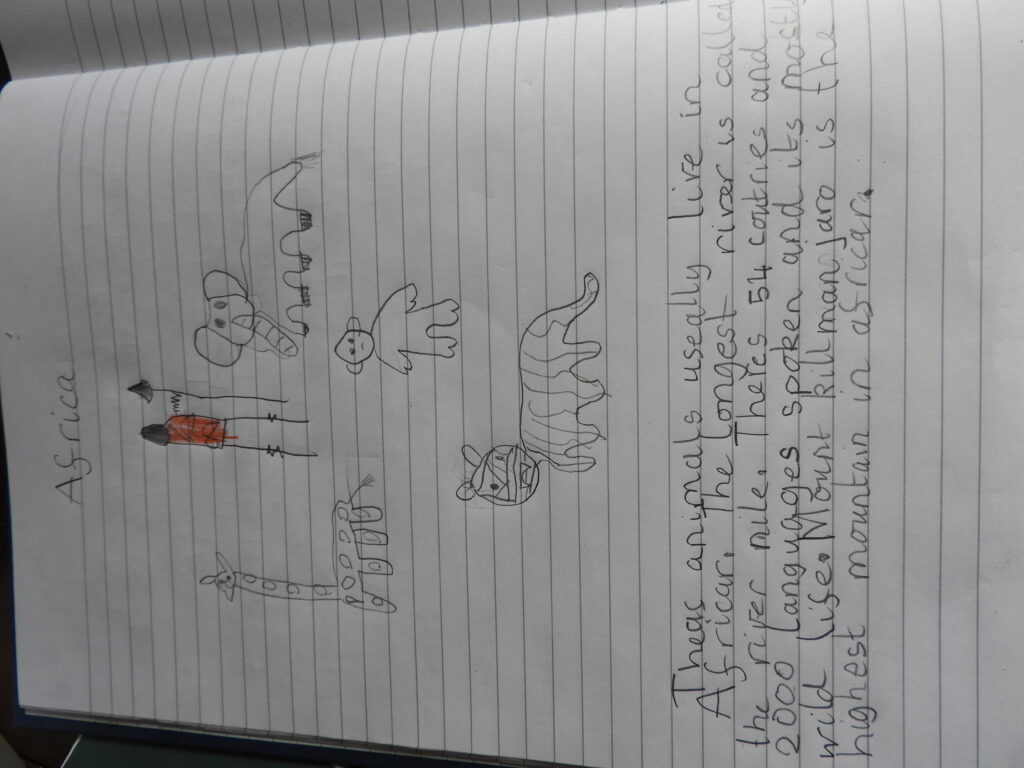 Africa
Theas animals useally live in
African. The longest river is called
the river nile. Theres 54 contries and
2000 languages spoken and its mostly
wild life. Mount killmanjaro is the
highest mountain in african.